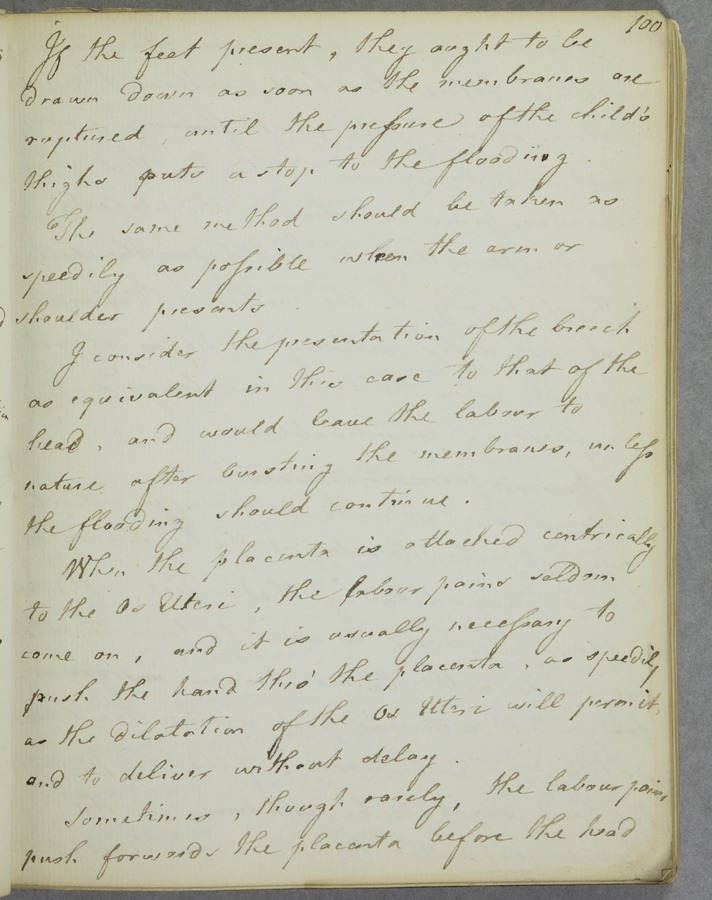 100
If the feet present, they ought to be
drawn down as soon as the membranes are
ruptured until the pressure of the child's
thighs puts a stop to the flooding.
The same method should be taken as
speedily as possible when the arm or
shoulder presents.
I consider the presentation of the breech
as equivalent in this case to that of the
head, and would leave the labour to
nature after bursting the membranes, unless
the flooding should continue.
When the placenta is attached centrically
to the Os Uteri, the labour pains seldom
come on, and it is usually necessary to
push the hand thro' the placenta, as speedily
as the dilatation of the Os Uteri will permit,
and to deliver without delay.
Sometimes, though rarely, the labour pains
push forwards the placenta before the head